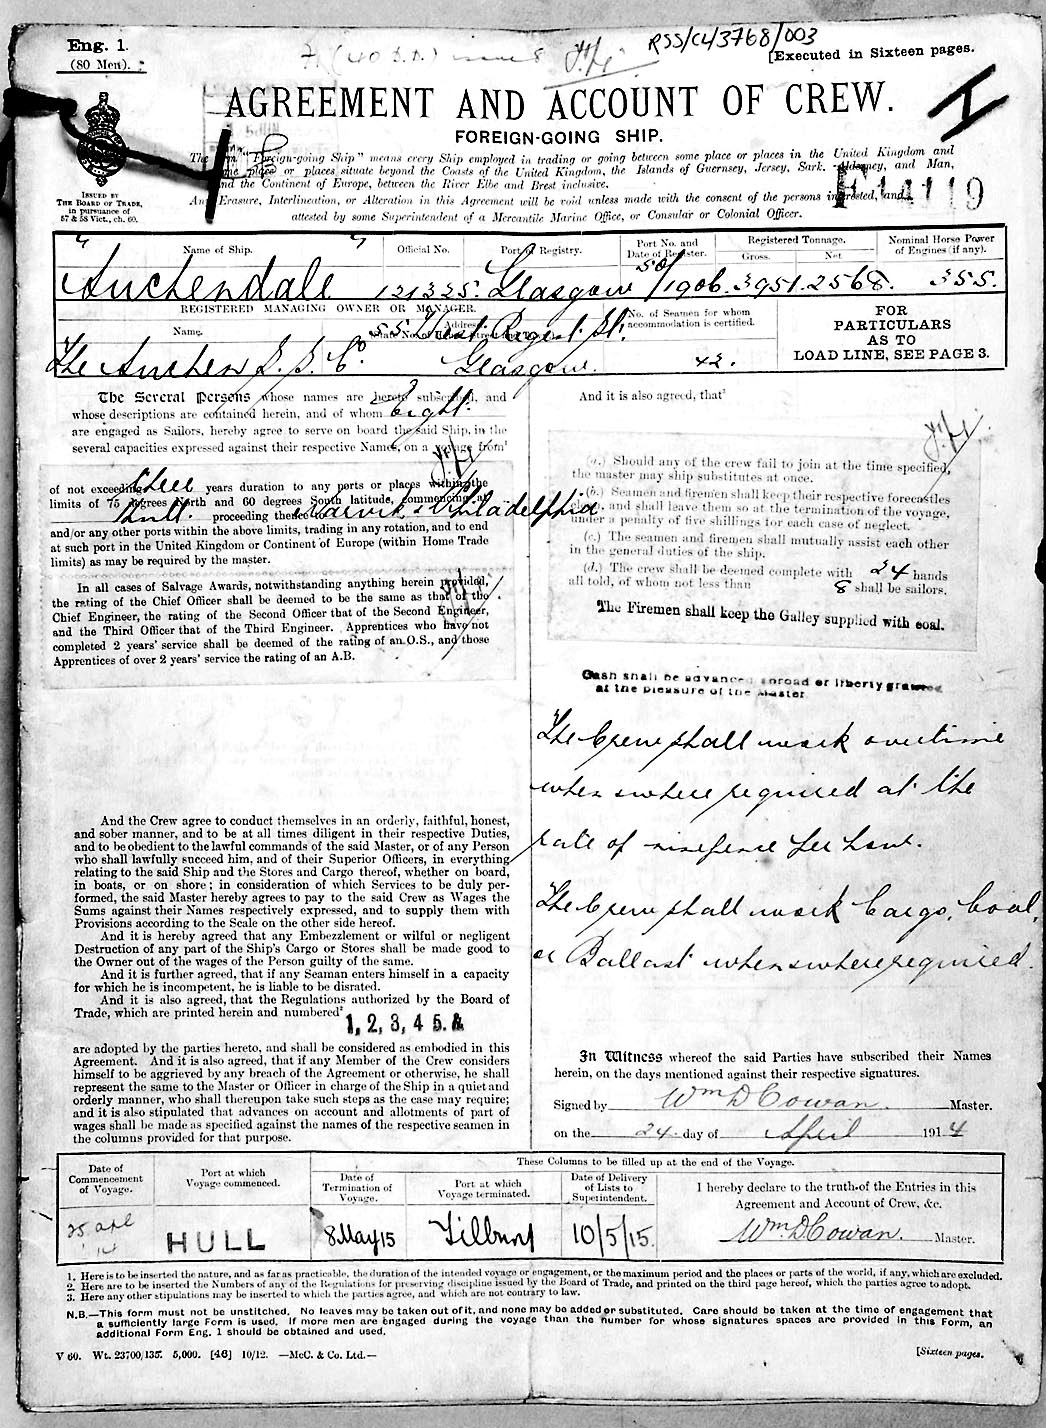 Eng. 1.
(80 Men).
RSS/CL/3768/003
[Executed in Sixteen pages.
AGREEMENT AND ACCOUNT OF CREW.
FOREIGN-GOING SHIP.
ISSUED BY
THE BOARD OF TRADE,
in pursuance of
57 & 58 Vict., ch. 60.
"Foreign-going Ship" means every Ship employed in trading or going between some place or places in the United Kingdom and
place or places situate beyond the Coasts of the United Kingdom, the Islands of Guernsey, Jersey, Sark, Alderney, and Man,
and the Continent of Europe, between the River Elbe and Brest inclusive.
Any Erasure, Interlineation, or Alteration in this Agreement will be void unless made with the consent of the persons interested, and
attested by some Superintendent of a Mercantile Marine Office, or Consular or Colonial Officer.
F 14119
Name of Ship. Official No. Port of Registry. Port No. and Date of Register. Registered Tonnage. Gross. Net Nominal Horse Power of Engines (if any).
"Auchendale" 121325. Glasgow 50/1906. 3951. 2568. 355.
REGISTERED MANAGING OWNER OR MANAGER.
Name. Address No. of Seamen for whom accommodation is certified.
The Auchen S. S. Co. 55 West Regent St. Glasgow. 42.
FOR
PARTICULARS
AS TO
LOAD LINE, SEE PAGE 3.
The Several Persons whose names are hereto subscribed, and
whose descriptions are contained herein, and of whom Eight
are engaged as Sailors, hereby agree to serve on board the said Ship, in the
several capacities expressed against their respective Names, on a voyage from¹
of not exceeding three years duration to any ports or places within the
limits of 75 degrees North and 60 degrees South latitude, commencing at
Hull. proceeding thence to Narvik & Philadelphia
and/or any other ports within the above limits, trading in any rotation, and to end
at such port in the United Kingdom or Continent of Europe (within Home Trade
limits) as may be required by the master.
In all cases of Salvage Awards, notwithstanding anything herein provided,
the rating of the Chief Officer shall be deemed to be the same as that of the
Chief Engineer, the rating of the Second Officer that of the Second Engineer,
and the Third Officer that of the Third Engineer. Apprentices who have not
completed 2 years' service shall be deemed of the rating of an O.S., and those
Apprentices of over 2 years' service the rating of an A.B.
And the Crew agree to conduct themselves in an orderly, faithful, honest,
and sober manner, and to be at all times diligent in their respective Duties,
and to be obedient to the lawful commands of the said Master, or of any Person
who shall lawfully succeed him, and of their Superior Officers, in everything
relating to the said Ship and the Stores and Cargo thereof, whether on board,
in boats, or on shore; in consideration of which Services to be duly per-
formed, the said Master hereby agrees to pay to the said Crew as Wages the
Sums against their Names respectively expressed, and to supply them with
Provisions according to the Scale on the other side hereof.
And it is hereby agreed that any Embezzlement or wilful or negligent
Destruction of any part of the Ship's Cargo or Stores shall be made good to
the Owner out of the wages of the Person guilty of the same.
And it is further agreed, that if any Seaman enters himself in a capacity
for which he is incompetent, he is liable to be disrated.
And it is also agreed, that the Regulations authorized by the Board of
Trade, which are printed herein and numbered²
1, 2, 3, 4 5. &
are adopted by the parties hereto, and shall be considered as embodied in this
Agreement. And it is also agreed, that if any Member of the Crew considers
himself to be aggrieved by any breach of the Agreement or otherwise, he shall
represent the same to the Master or Officer in charge of the Ship in a quiet and
orderly manner, who shall thereupon take such steps as the case may require;
and it is also stipulated that advances on account and allotments of part of
wages shall be made as specified against the names of the respective seamen in
the columns provided for that purpose.
And it is also agreed, that³
(a.) Should any of the crew fail to join at the time specified,
the master may ship substitutes at once.
(b.) Seamen and firemen shall keep their respective forecastles
clean, and shall leave them so at the termination of the voyage,
under a penalty of five shillings for each case of neglect.
(c.) The seamen and firemen shall mutually assist each other
in the general duties of the ship.
(d.) The crew shall be deemed complete with 24 hands
all told, of whom not less than 8 shall be sailors.
The Firemen shall keep the Galley supplied with coal.
Cash shall be advanced abroad or liberty granted
at the pleasure of the Master
The Crew shall work overtime
when & where required at the
rate of ninepence per hour.
The Crew shall work Cargo, Coal,
or Ballast when & where required.
In Witness whereof the said Parties have subscribed their Names
herein, on the days mentioned against their respective signatures.
Signed by Wm D Cowan. Master.
on the 24 day of April 1914
Date of Commencement of Voyage. Port at which Voyage commenced. These Columns to be filled up at the end of the Voyage.
Date of Termination of Voyage. Port at which Voyage terminated. Date of Delivery of Lists to Superintendent. I hereby declare to the truth of the Entries in this
Agreement and Account of Crew, &c.
25 Apl '14 HULL 8 May 15 Tilbury 10/5/15. Wm D Cowan. Master.
1. Here is to be inserted the nature, and as far as practicable, the duration of the intended voyage or engagement, or the maximum period and the places or parts of the world, if any, which are excluded.
2. Here are to be inserted the Numbers of any of the Regulations for preserving discipline issued by the Board of Trade, and printed on the third page hereof, which the parties agree to adopt.
3. Here any other stipulations may be inserted to which the parties agree, and which are not contrary to law.
N.B.—This form must not be unstitched. No leaves may be taken out of it, and none may be added or substituted. Care should be taken at the time of engagement that
a sufficiently large Form is used. If more men are engaged during the voyage than the number for whose signatures spaces are provided in this Form, an
additional Form Eng. 1 should be obtained and used.
V 60. Wt. 23700/135. 5,000. [46] 10/12. —McC. & Co. Ltd.—
[Sixteen pages.